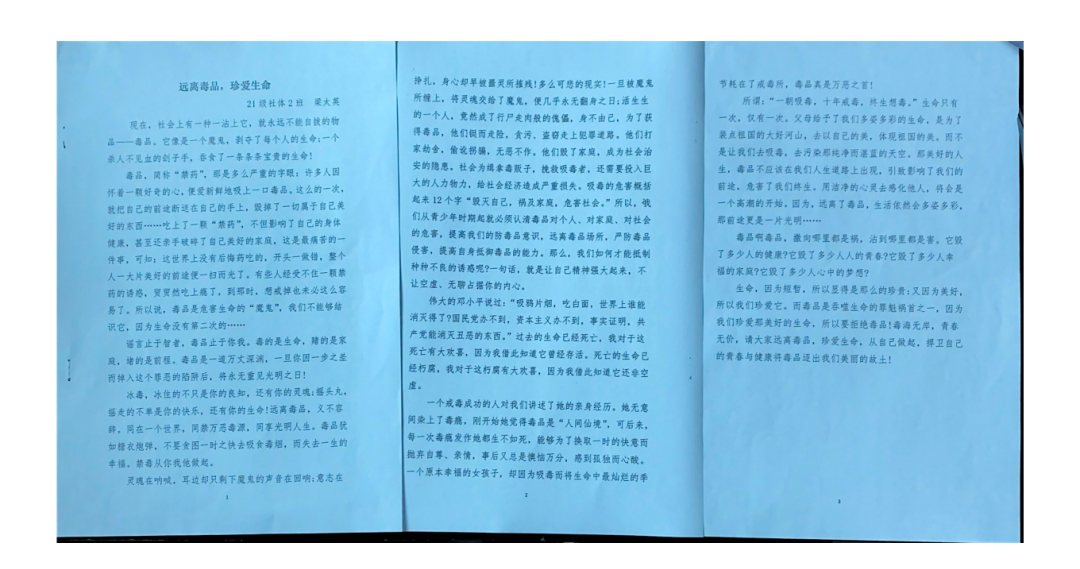 远离毒品，珍爱生命
21级社体2班 梁大英
现在，社会上有一种一沾上它，就永远不能自拔的物
品——毒品。它像是一个魔鬼，剥夺了每个人的生命；一个
杀人不见血的刽子手，吞食了一条条宝贵的生命！
毒品，简称“禁药”，那是多么严重的字眼；许多人因
怀着一颗好奇的心，便爱新鲜地吸上一口毒品。这么的一次，
就把自己的前途断送在自己的手上，毁掉了一切属于自己美
好的东西……吃上了一颗“禁药”，不但影响了自己的身体
健康，甚至还亲手破碎了自己美好的家庭，这是最痛苦的一
件事，可知：这世界上没有后悔药吃的，开头一做错，整个
人一大片美好的前途便一扫而光了。有些人经受不住一颗禁
药的诱惑，贸贸然吃上瘾了，到那时，想戒掉也未必这么容
易了。所以说，毒品是危害生命的“魔鬼”，我们不能够给
识它，因为生命没有第二次的……
谣言止于智者，毒品止于你我。毒的是生命，赌的是家
庭，堵的是前程。毒品是一道万丈深渊，一旦你因一步之差
而掉入这个罪恶的陷阱后，将永无重见光明之日！
冰毒，冰住的不只是你的良知，还有你的灵魂；摇头丸，
摇走的不单是你的快乐，还有你的生命！远离毒品，义不容
辞。同在一个世界，同禁万恶毒源，同享光明人生。毒品犹
如糖衣炮弹，不要贪图一时之快去吸食毒烟，而失去一生的
幸福，禁毒从你我他做起。
灵魂在呐喊，耳边却只剩下魔鬼的声音在回响；意志在
1
挣扎，身心却早被噩灵所摧残！多么可悲的现实！一旦被魔鬼
所缠上，将灵魂交给了魔鬼，便几乎永无翻身之日；活生生
的一个人，竟然成了行尸走肉般的傀儡，身不由己，为了获
得毒品，他们铤而走险，贪污、盗窃走上犯罪道路。他们打
家劫舍，偷说拐骗，无恶不作，他们毁了家庭，成为社会治
安的隐患，社会为缉拿毒贩子，挽救吸毒者，还需要投入巨
大的人力物力，给社会经济造成严重损失。吸毒的危害概括
起来12个字“毁灭自己，祸及家庭，危害社会。”所以，我
们从青少年时期起就必须认清毒品对个人、对家庭、对社会
的危害，提高我们的防毒品意识，远离毒品场所，严防毒品
侵害，提高自身抵御毒品的能力。那么，我们如何才能抵制
种种不良的诱惑呢？一句话，就是让自己精神强大起来，不
让空虚、无聊占据你的内心。
伟大的邓小平说过：“吸鸦片烟，吃白面，世界上谁能
消灭得了？国民党办不到，资本主义办不到，事实证明，共
产党能消灭丑恶的东西。”过去的生命已经死亡，我对于这
死亡有大欢喜，因为我借此知道它曾经存活。死亡的生命已
经朽腐，我对于这朽腐有大欢喜，因为我借此知道它还非空
虚。
一个戒毒成功的人对我们讲述了她的亲身经历。她无意
间染上了毒瘾，刚开始她觉得毒品是“人间仙境”，可后来，
每一次毒瘾发作她都生不如死，能够为了换取一时的快意而
抛弃自尊、亲情，事后又总是懊恼万分，感到孤独而心酸。
一个原本幸福的女孩子，却因为吸毒而将生命中最灿烂的季
2
节耗在了戒毒所，毒品真是万恶之首！
所谓：“一朝吸毒，十年戒毒，终生想毒。”生命只有
一次，仅有一次。父母给予了我们多姿多彩的生命，是为了
装点祖国的大好河山，去以自己的美，体现祖国的美。而不
是让我们去吸毒，去污染那纯净而湛蓝的天空。那美好的人
生，毒品不应该在我们人生道路上出现，引致影响了我们的
前途，危害了我们终生。用洁净的心灵去感化他人，将会是
一个高潮的开始。因为，远离了毒品，生活依然会多姿多彩，
那前途更是一片光明……
毒品啊毒品，撒向哪里都是祸，沾到哪里都是害。它毁
了多少人的健康？它毁了多少人人的青春？它毁了多少人幸
福的家庭？它毁了多少人心中的梦想？
生命，因为短暂，所以显得是那么的珍贵；又因为美好，
所以我们珍爱它。而毒品是吞噬生命的罪魁祸首之一，因为
我们珍爱那美好的生命，所以要拒绝毒品！毒海无岸，青春
无价，请大家远离毒品，珍爱生命，从自己做起，捍卫自己
的青春与健康将毒品逐出我们美丽的故土！
3